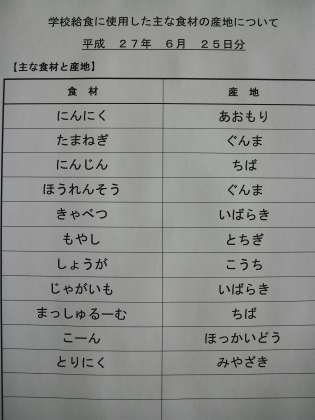 学校給食に使用した主な食材の産地について
平成 27年 6月 25日分
【主な食材と産地】
食 材 産 地
にんにく あおもり
たまねぎ ぐんま
にんじん ちば
ほうれんそう ぐんま
きゃべつ いばらき
もやし とちぎ
しょうが こうち
じゃがいも いばらき
まっしゅるーむ ちば
こーん ほっかいどう
とりにく みやざき